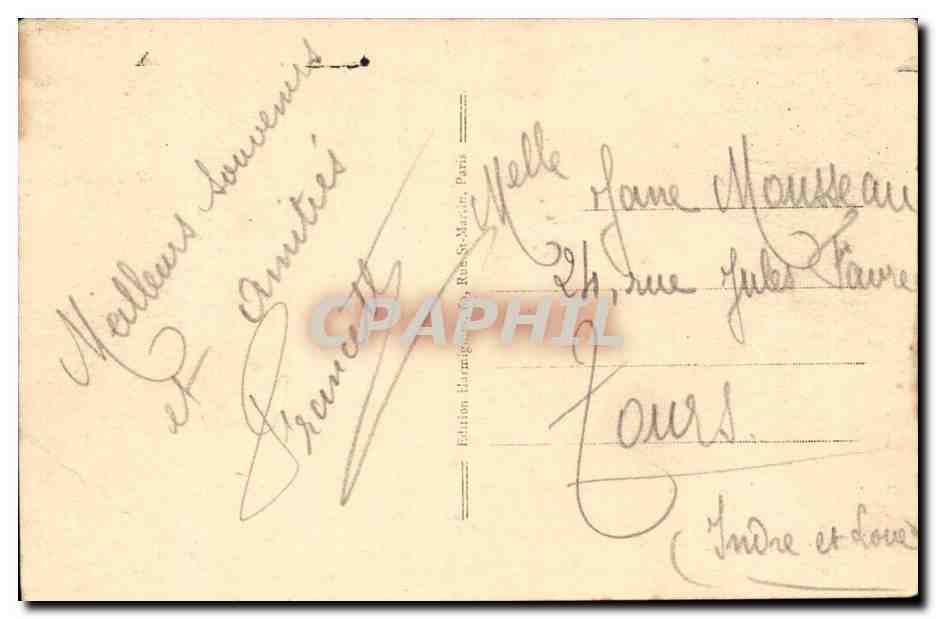 Meilleurs souvenirs
et amitiés
Edition Harmignies, Rue St-Martin, Paris
Melle Jane Mousseau
24, rue Jules Favre
Tours.
(Indre et Loire
CPAPHIL